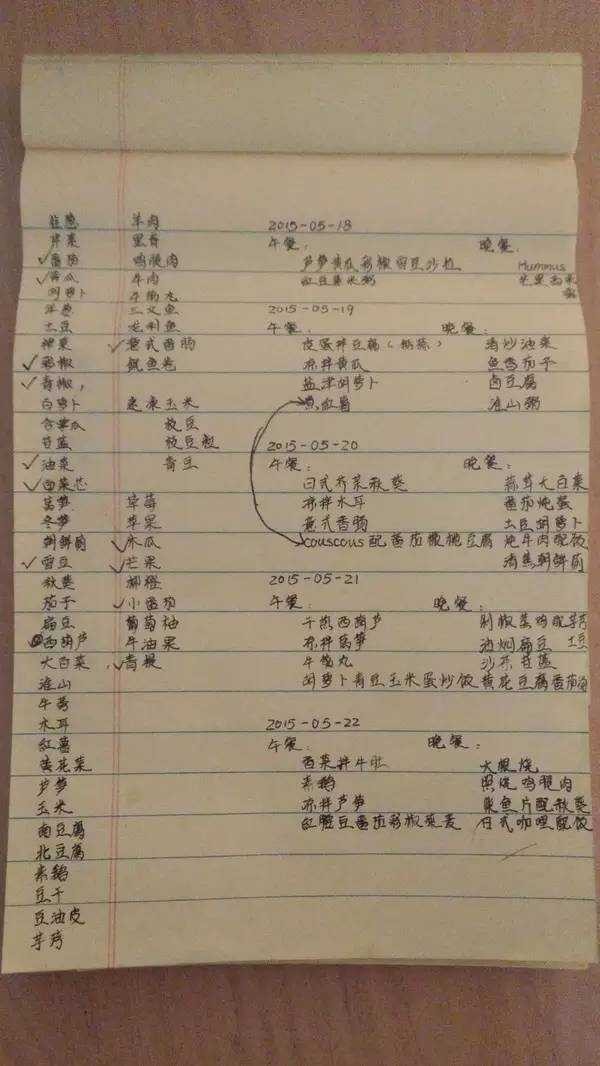 佳葱 羊肉
芹菜 里脊 2015-05-18
✓番茄 鸡腿肉 午餐： 晚餐：
✓黄瓜 牛肉 芦笋黄瓜彩椒雪豆沙拉 Hummus
胡萝卜 牛筋丸 红豆薏米粥
洋葱 三文鱼 2015-05-19
土豆 龙利鱼 午餐： 晚餐：
✓意式香肠 皮蛋拌豆腐 清炒油菜
✓彩椒 鱿鱼卷 凉拌黄瓜 鱼香茄子
✓青椒， 盐津胡萝卜 卤豆腐
白萝卜 速冻玉米 红薯 淮山粥
枝豆
苷蓝 2015-05-20
✓油菜 青豆 午餐： 晚餐：
✓西菜芯 日式芥菜秋葵 蒜茸大白菜
莴笋 草莓 凉拌木耳 番茄炖蛋
冬笋 苹果 意式香肠 土豆胡萝卜
朝鲜蓟 ✓木瓜 couscous配番茄椒豆腐 炖牛肉配饭
✓雪豆 ✓芒果 清蒸朝鲜蓟
秋葵 柳橙 2015-05-21
茄子 ✓小番茄 午餐： 晚餐：
扁豆 葡萄柚 干煎西葫芦 剁椒蒸鸡配
西葫芦 牛油果 凉拌莴笋 油焖扁豆 土豆
大白菜 ✓青柠 牛筋丸 沙茶苷蓝
淮山 胡萝卜青豆玉米蛋炒饭 黄花豆腐番茄
牛蒡
木耳 2015-05-22
红薯 午餐： 晚餐：
黄花菜 西菜拌牛肚 大阪烧
芦笋 素鹅 照烧鸡腿肉
玉米 凉拌芦笋 鱼片配秋葵
南豆腐 红腰豆番茄彩椒荞麦 日式咖喱配饭
北豆腐
素鹅
豆干
豆油皮
芋艿